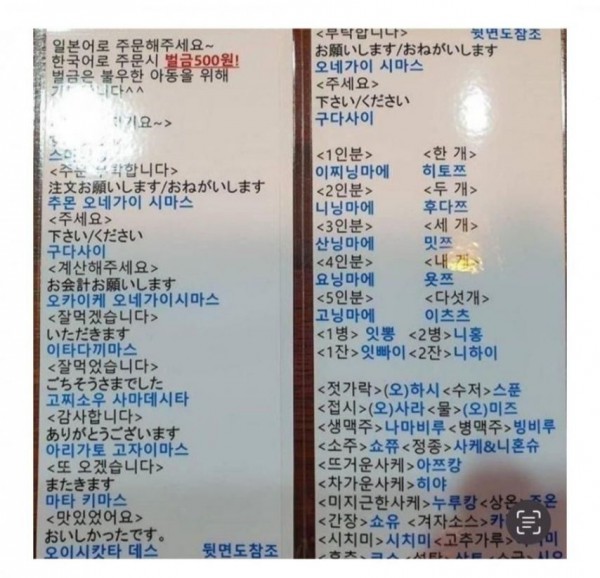 일본어로 주문해주세요~
한국어로 주문시 벌금500원!
벌금은 불우한 아동을 위해
<주문 부탁합니다>
注文お願いします/おねがいします
추몬 오네가이 시마스
<주세요>
下さい/ください
구다사이
<계산해주세요>
お会計お願いします
오카이케 오네가이시마스
<잘먹겠습니다>
いただきます
이타다끼마스
<잘먹었습니다>
ごちそうさまでした
고찌소우 사마데시타
<감사합니다>
ありがとうございます
아리가토 고자이마스
<또 오겠습니다>
またきます
마타 키마스
<맛있었어요>
おいしかったです。
오이시캇타 데스 뒷면도참조
<부탁합니다> 뒷면도참조
お願いします/おねがいします
오네가이 시마스
<주세요>
下さい/ください
구다사이
<1인분> <한 개>
이찌닝마에 히토쯔
<2인분> <두 개>
니닝마에 후다쯔
<3인분> <세 개>
산닝마에 밋쯔
<4인분> <내 개>
요닝마에 욧쯔
<5인분> <다섯개>
고닝마에 이츠츠
<1병> 잇뽕 <2병> 니홍
<1잔>잇빠이 <2잔> 니하이
<젓가락>(오)하시 <수저>스푼
<접시>(오)사라 <물>(오)미즈
<생맥주>나마비루 <병맥주>빙비루
<소주>쇼쮸 <정종>사케&니혼슈
<뜨거운사케>아쯔캉
<차가운사케>히야
<미지근한사케>누루캉 <상온>
<간장>쇼유 <겨자소스>
<시치미>시치미 <고추가루>